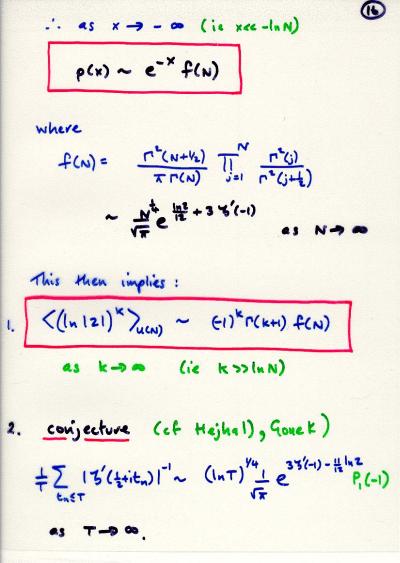 16
∴ as x → - ∞ (ie x << -lnN)
p(x) ~ e^{-x} f(N)
where
f(N) = Γ²(N+1/2) / (π Γ(N)) ∏_{j=1}^{N} Γ²(j) / Γ²(j+1/2)
~ N^{1/4}/√π e^{ln2/12 + 3ζ'(-1)} as N → ∞
This then implies :
1. <(ln |z|)^k>_{U(N)} ~ (-1)^k Γ(k+1) f(N)
as k → ∞ (ie k >> lnN)
2. conjecture (cf Hejhal), Gonek)
1/T Σ_{t_n≤T} |ζ'(1/2+it_n)|^{-1} ~ (lnT)^{1/4} 1/√π e^{3ζ'(-1) - 11/12 ln2} P_1(-1)
as T → ∞.